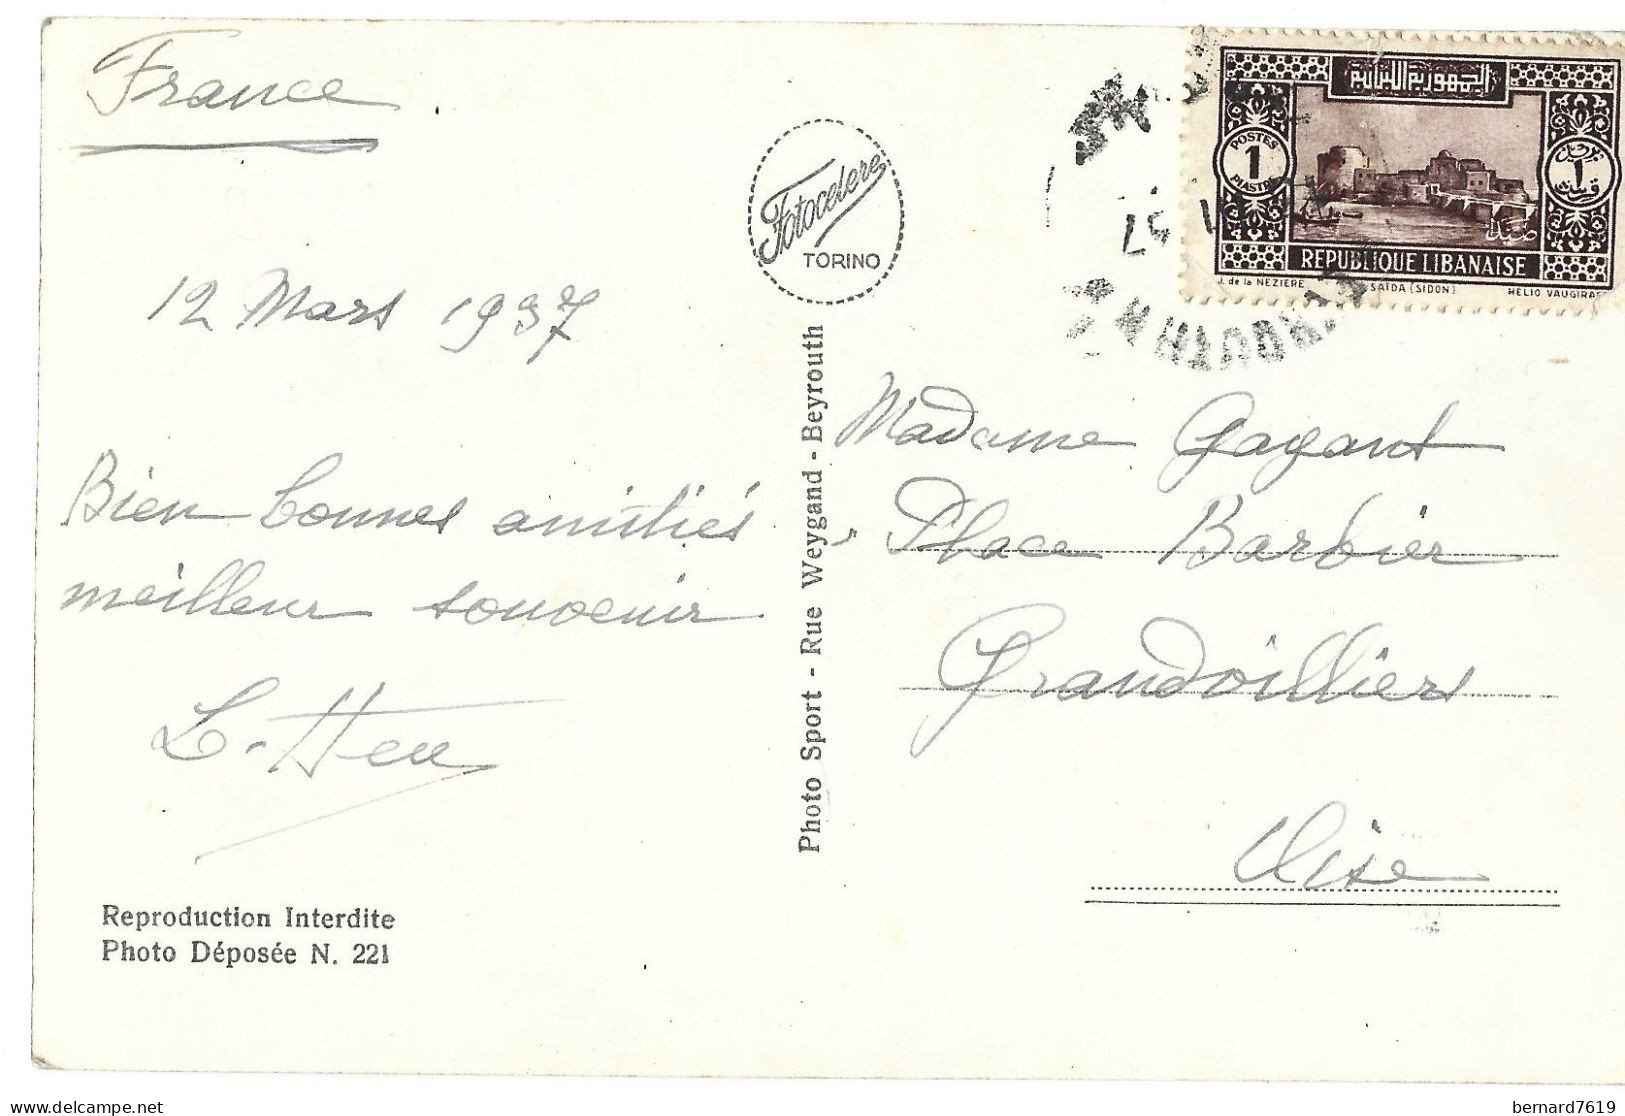 France
Fotocelere
TORINO
الجمهورية اللبنانية
POSTES
1
PIASTRE
١
صيدا
REPUBLIQUE LIBANAISE
J. de la NEZIERE SAÏDA (SIDON) HELIO VAUGIRA
12 Mars 1937
Photo Sport - Rue Weygand - Beyrouth
Madame Gagant
Place Barbier
Grandvilliers
Oise
Bien bonnes amitiés
meilleur souvenir
Reproduction Interdite
Photo Déposée N. 221
bernard7619